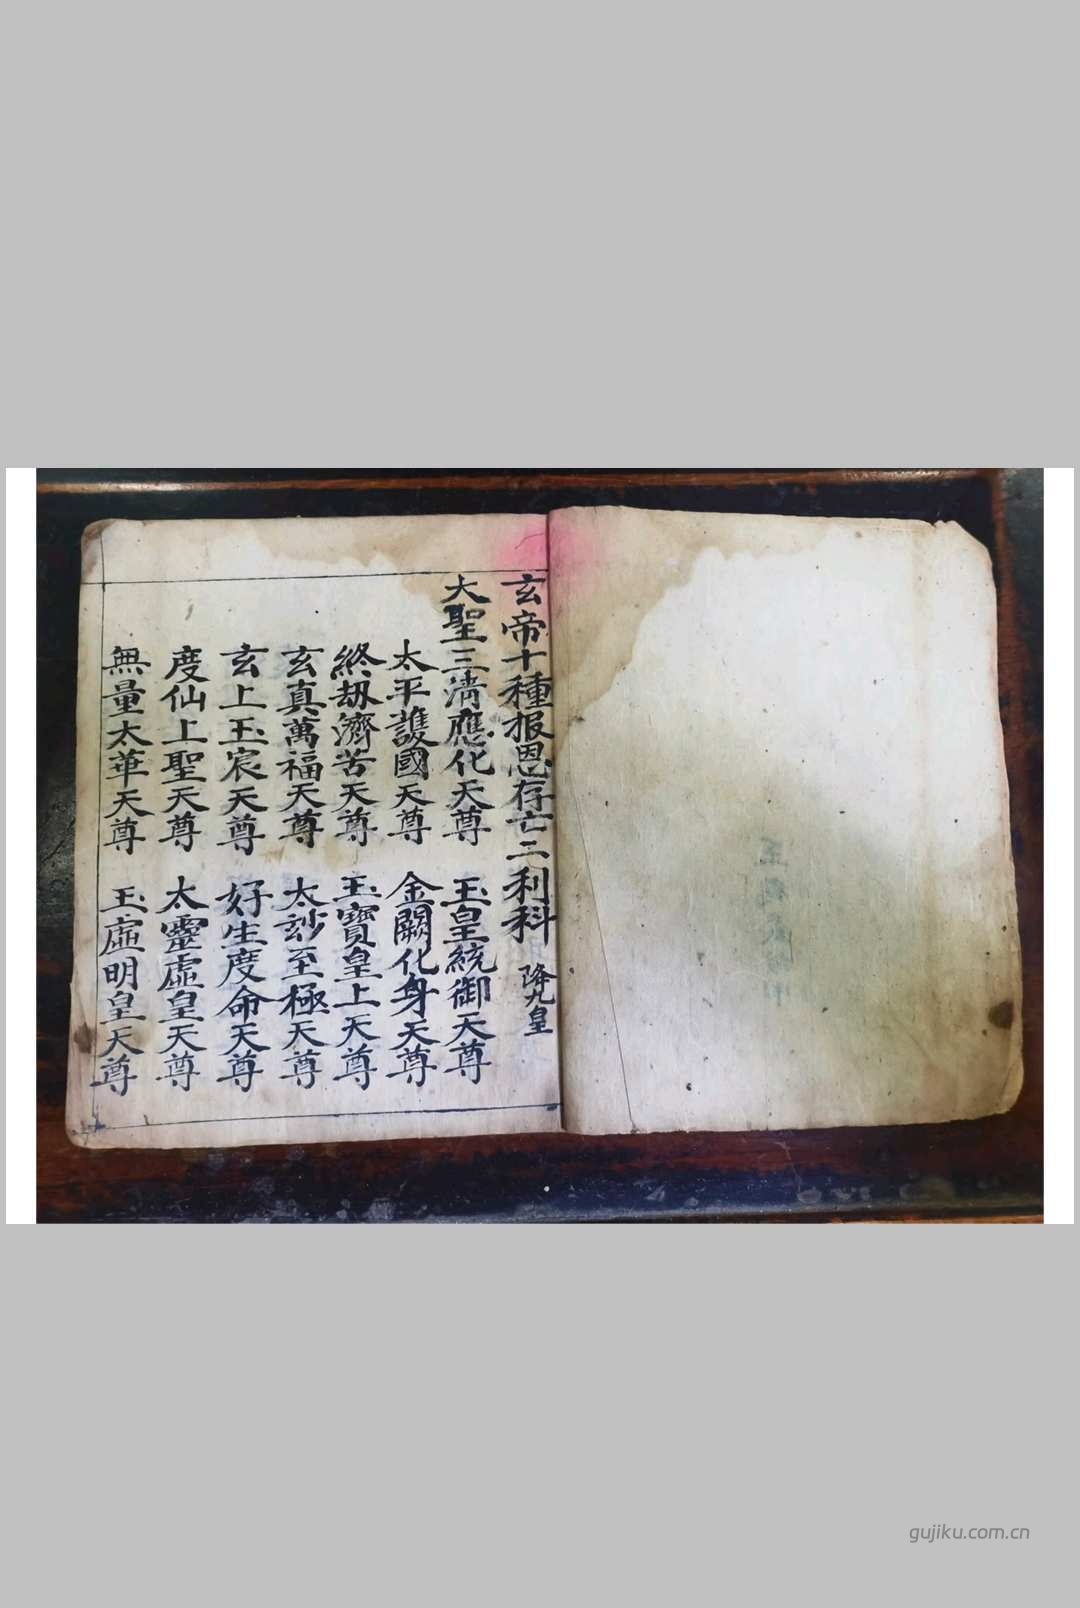 玄帝十種报恩存亡二利科 降九皇
大聖三清應化天尊 玉皇統御天尊
太平護國天尊 金闕化身天尊
終刼濟苦天尊 玉寶皇上天尊
玄真萬福天尊 太玅至極天尊
玄上玉宸天尊 好生度命天尊
度仙上聖天尊 太靈虛皇天尊
無量太華天尊 玉虛明皇天尊
gujiku.com.cn